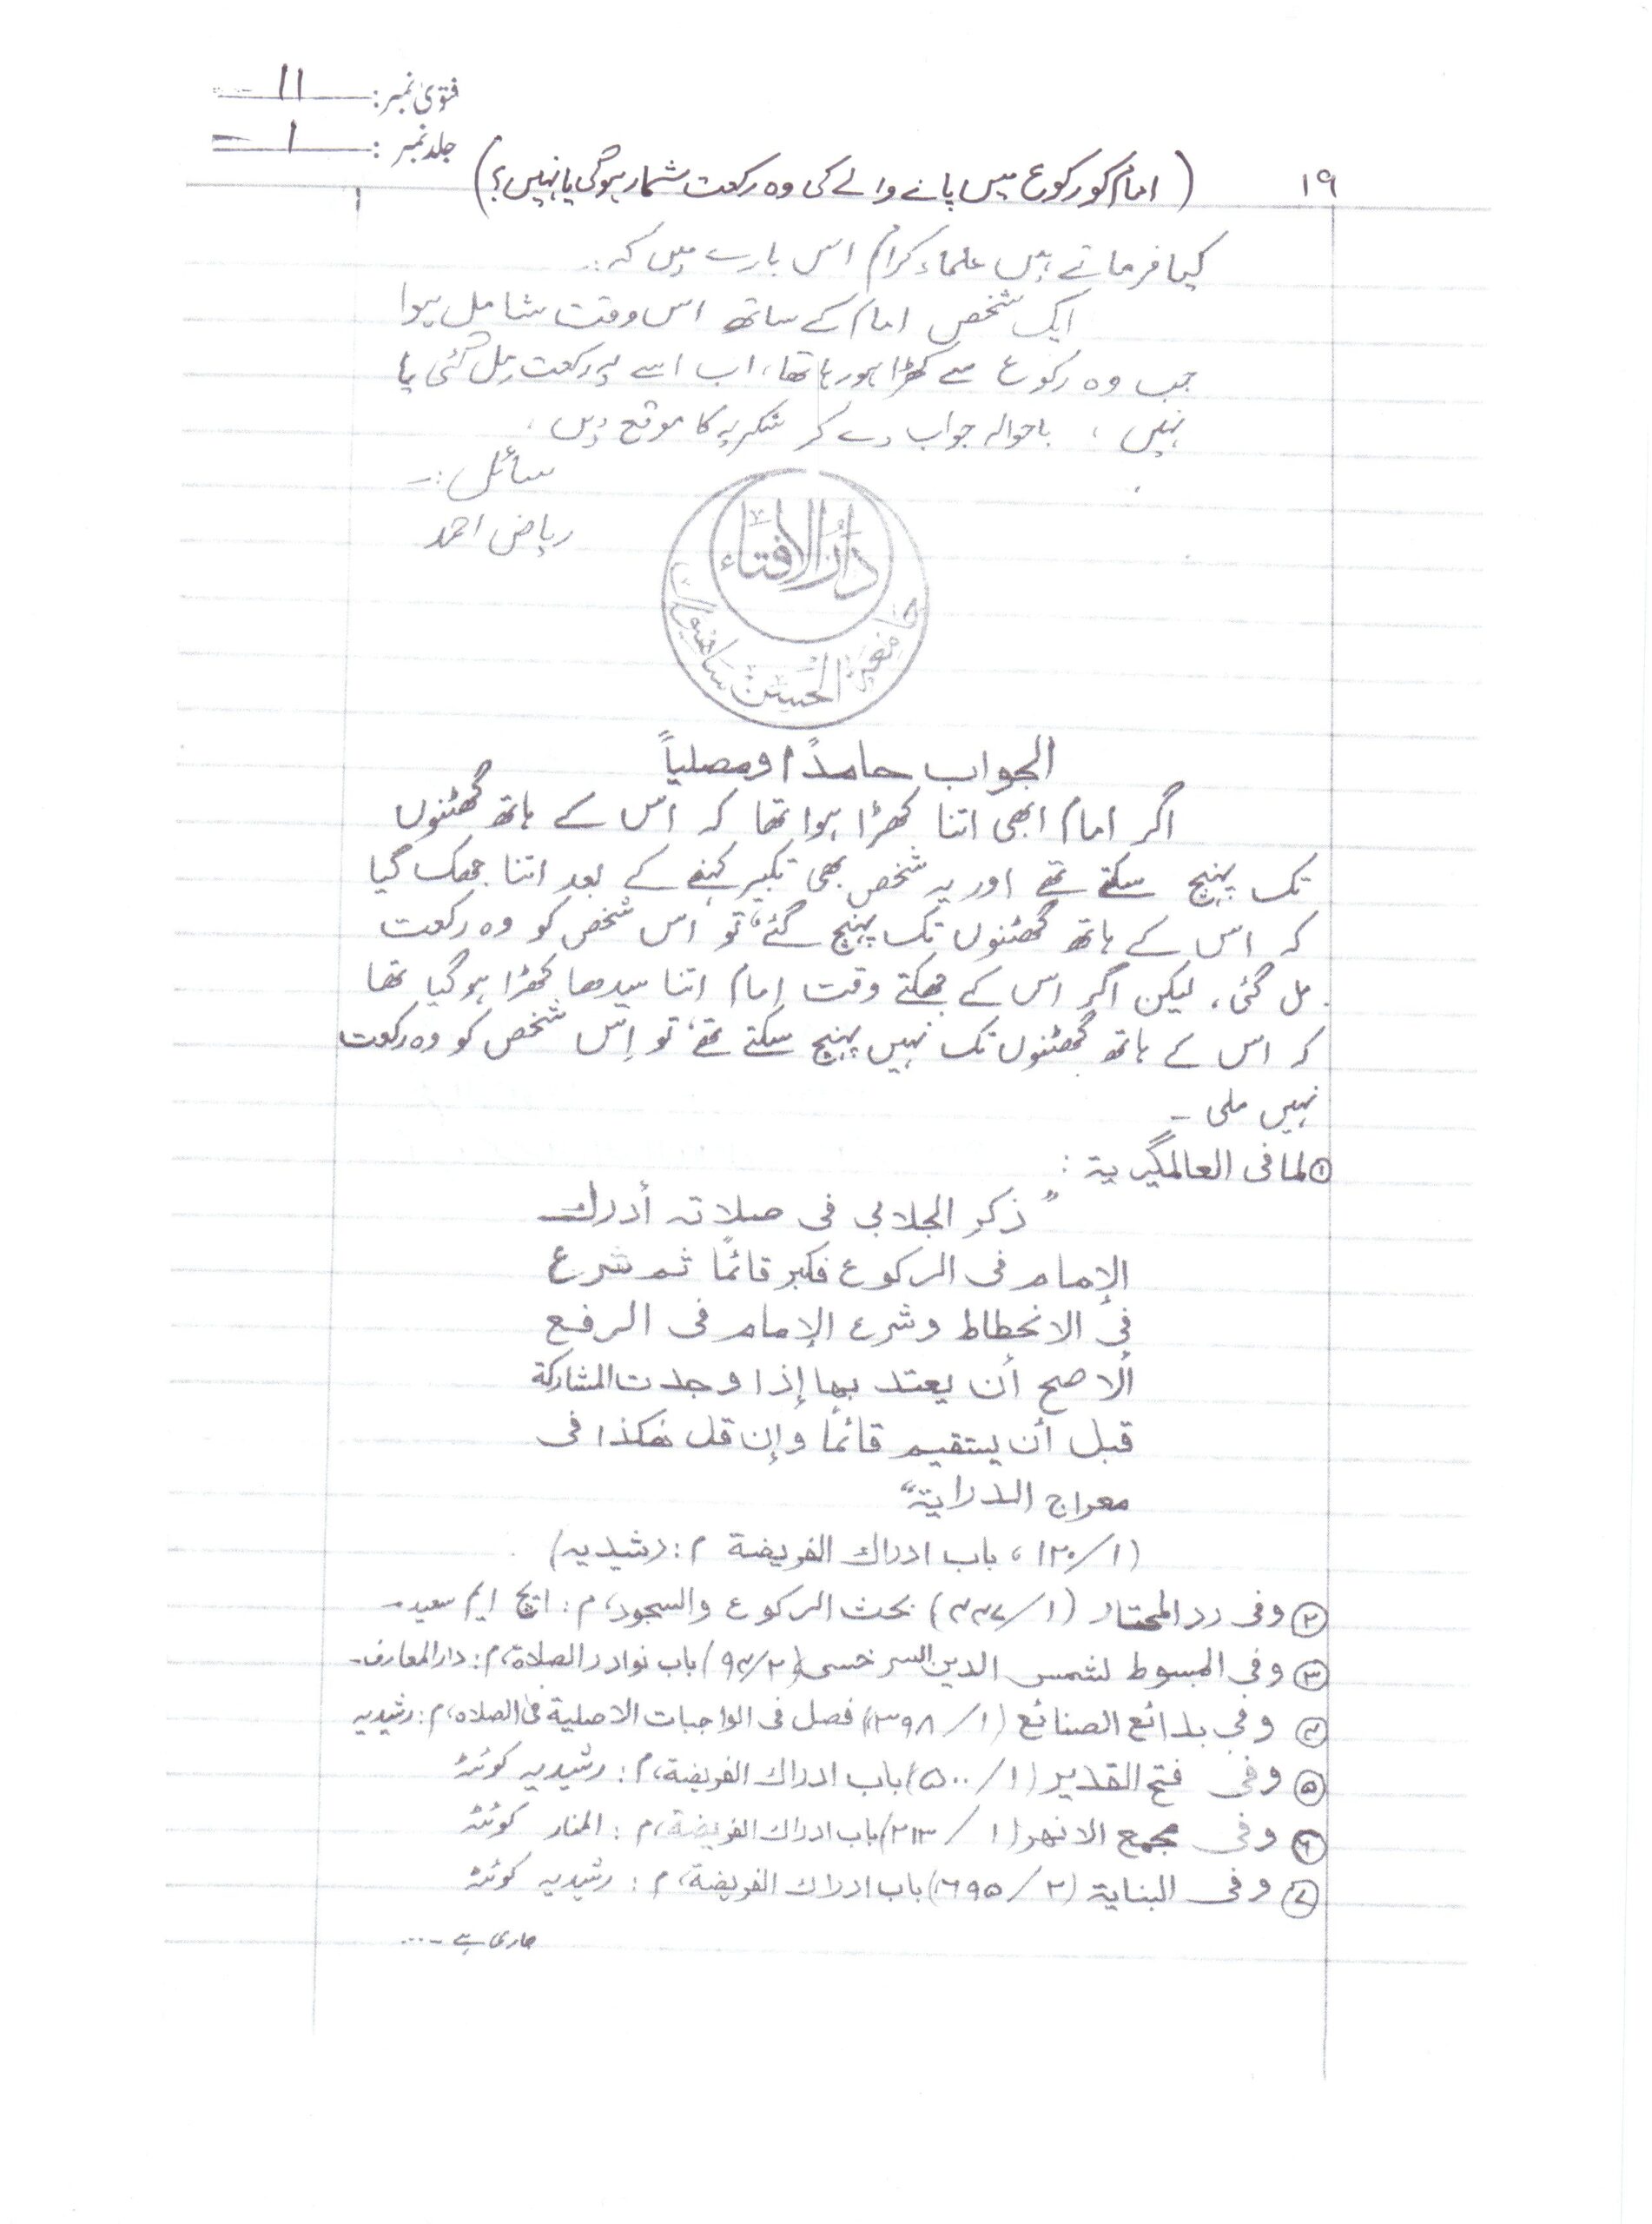 فتویٰ نمبر: ۱۱
جلد نمبر: ۱
۱۹ (امام کو رکوع میں پانے والے کی وہ رکعت شمار ہوگی یا نہیں؟)
کیا فرماتے ہیں علماء کرام اس بارے میں کہ:۔
ایک شخص امام کے ساتھ اس وقت شامل ہوا
جب وہ رکوع سے کھڑا ہو رہا تھا، اب اسے یہ رکعت مل گئی یا
نہیں، باحوالہ جواب دے کر شکریہ کا موقع دیں،
سائل:۔
ریاض احمد
دار الافتاء
جامعہ الحسین ساہیوال
الجواب حامداً ومصلیاً
اگر امام ابھی اتنا کھڑا ہوا تھا کہ اس کے ہاتھ گھٹنوں
تک پہنچ سکتے تھے اور یہ شخص بھی تکبیر کہنے کے بعد اتنا جھک گیا
کہ اس کے ہاتھ گھٹنوں تک پہنچ گئے، تو اس شخص کو وہ رکعت
مل گئی، لیکن اگر اس کے جھکتے وقت امام اتنا سیدھا کھڑا ہوگیا تھا
کہ اس کے ہاتھ گھٹنوں تک نہیں پہنچ سکتے تھے، تو اِس شخص کو وہ رکعت
نہیں ملی ۔
① لما فی العالمگیریة :
"ذکر الجلابی فی صلاته أدرك
الإمام فی الرکوع فکبر قائمًا ثم شرع
فی الانحطاط وشرع الإمام فی الرفع
ألاصح أن یعتد بها إذا وجدت المشارکة
قبل أن یستقیم قائمًا وإن قل هٰکذا فی
معراج الدرایة"
(۱/۱۲۰، باب ادراك الفریضة م: رشیدیہ)
② وفی رد المحتار (۱/۴۴۷) بحث الرکوع والسجود، م: ایچ ایم سعید۔
③ وفی المبسوط لشمس الدین السرخسی (۲/۹۴) باب نوادر الصلاة، م: دار المعارف۔
④ وفی بدائع الصنائع (۱/۳۹۸) فصل فی الواجبات الاصلیة فی الصلاه، م: رشیدیہ
⑤ وفی فتح القدیر (۱/۵۰۰) باب ادراك الفریضة، م: رشیدیہ کوئٹہ
⑥ وفی مجمع الانهر (۱/۲۱۳) باب ادراك الفریضة، م: المنار کوئٹہ
⑦ وفی البنایة (۲/۶۹۵) باب ادراك الفریضة، م: رشیدیہ کوئٹہ
جاری ہے ۔...